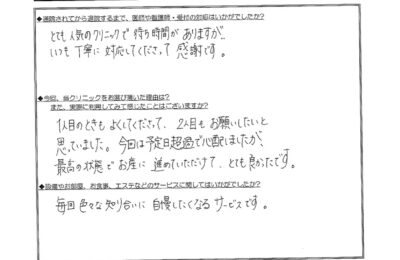 ◆通院されてから退院するまで、医師や看護師・受付の対応はいかがでしたか?
とても人気のクリニックで待ち時間がありますが、
いつも丁寧に対応してくださって感謝です。
◆今回、当クリニックをお選び頂いた理由は?
また、実際に利用してみて感じたことはございますか?
1人目のときもよくしてくださって、2人目もお願いしたいと
思っていました。今回は予定日超過で心配しましたが、
最高の状態でお産に進めていただけて、とても良かったです。
◆設備やお部屋、お食事、エステなどのサービスに関してはいかがでしたか?
毎回色々な知り合いに自慢したくなるサービスです。